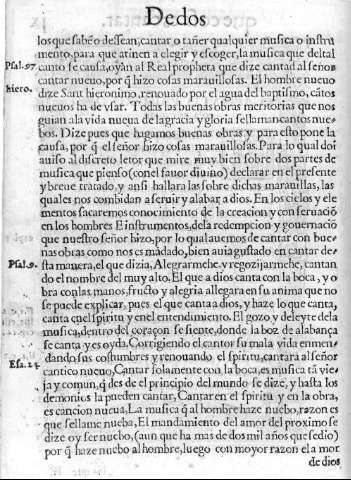 De dos
los que sabẽ o dessean, cantar o tañer qualquier musica o instru
mento, para que atinen a elegir y escoger, la musica que deltal
Psal.97 canto se causa, oyan al Real propheta que dize cantad al señor
cantar nueuo, por q̃ hizo cosas marauillosas. El hombre nueuo
hiero. dize Sant hieronimo, renouado por el agua del baptismo, cãtos
nueuos ha de vsar. Todas las buenas obras meritorias que nos
guian ala vida nueua de la gracia y gloria se llaman cantos nue-
bos. Dize pues que hagamos buenas obras y para esto pone la
causa, por q̃ el señor hizo cosas marauillosas. Para lo qual doi
auiso al discreto letor que mire muy bien sobre dos partes de
musica que pienso (con el fauor diuino) declarar en el presente
y breue tratado, y ansi hallara las sobre dichas marauillas, las
quales nos combidan a seruir y alabar a dios. En los cielos y ele
mentos sacaremos conocimiento de la creacion y con seruaciõ
en los hombres E instrumentos, dela redempcion y gouernaciõ
que nuestro señor hizo, por lo qual auemos de cantar con bue-
nas obras como nos es mãdado, bien auia gustado en cantar de
Psal.9. sta manera, el que dizia, Alegrarme he y regozijarme he, cantan
do el nombre del muy alto. El que a dios canta con la boca, y o
bra con las manos, fructo y alegria allegara en su anima que no
se puede explicar, pues el que canta a dios, y haze lo que canta,
canta en el spiritu y en el entendimiento. El gozo y deleyte dela
musica, dentro del coraçon se siente, donde la boz de alabança
se canta y es oyda. Corrigiendo el cantor su mala vida enmen-
Esa.24 dando sus costumbres y renouando el spiritu, cantara al señor
cantico nueuo, Cantar solamente con la boca, es musica tã vie-
ja y comun, q̃ des de el principio del mundo se dize, y hasta los
demonios la pueden cantar, Cantar en el spiritu y en la obra,
es cancion nueua, La musica q̃ al hombre haze nuebo, razon es
que se llame nueba, El mandamiento del amor del proximo se
dize oy ser nuebo, (aun que ha mas de dos mil años que se dio)
por q̃ haze nuebo al hombre, luego con moyor razon el amor
de dios